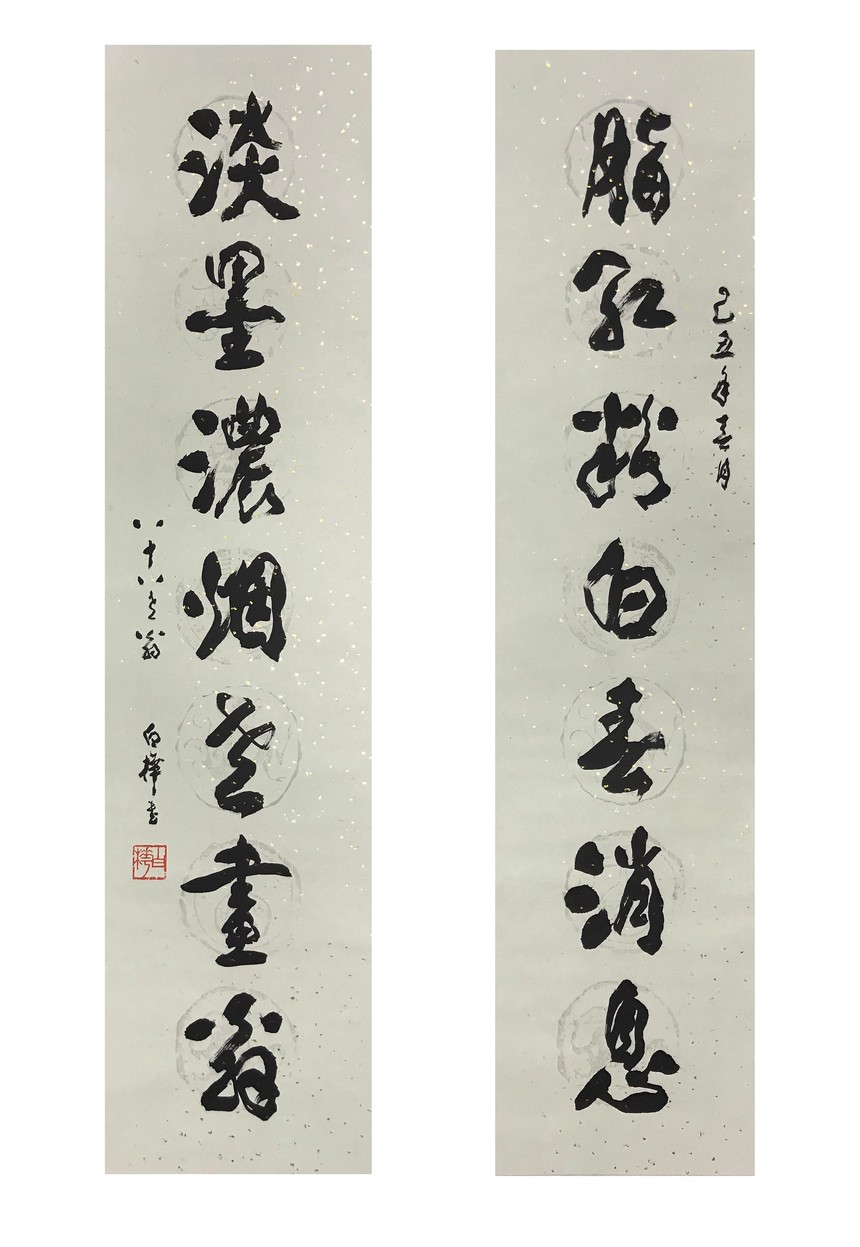 己丑年 月
脂紅粉白春消息
淡墨濃烟老畫翁
八十八老翁 白樺書
白樺